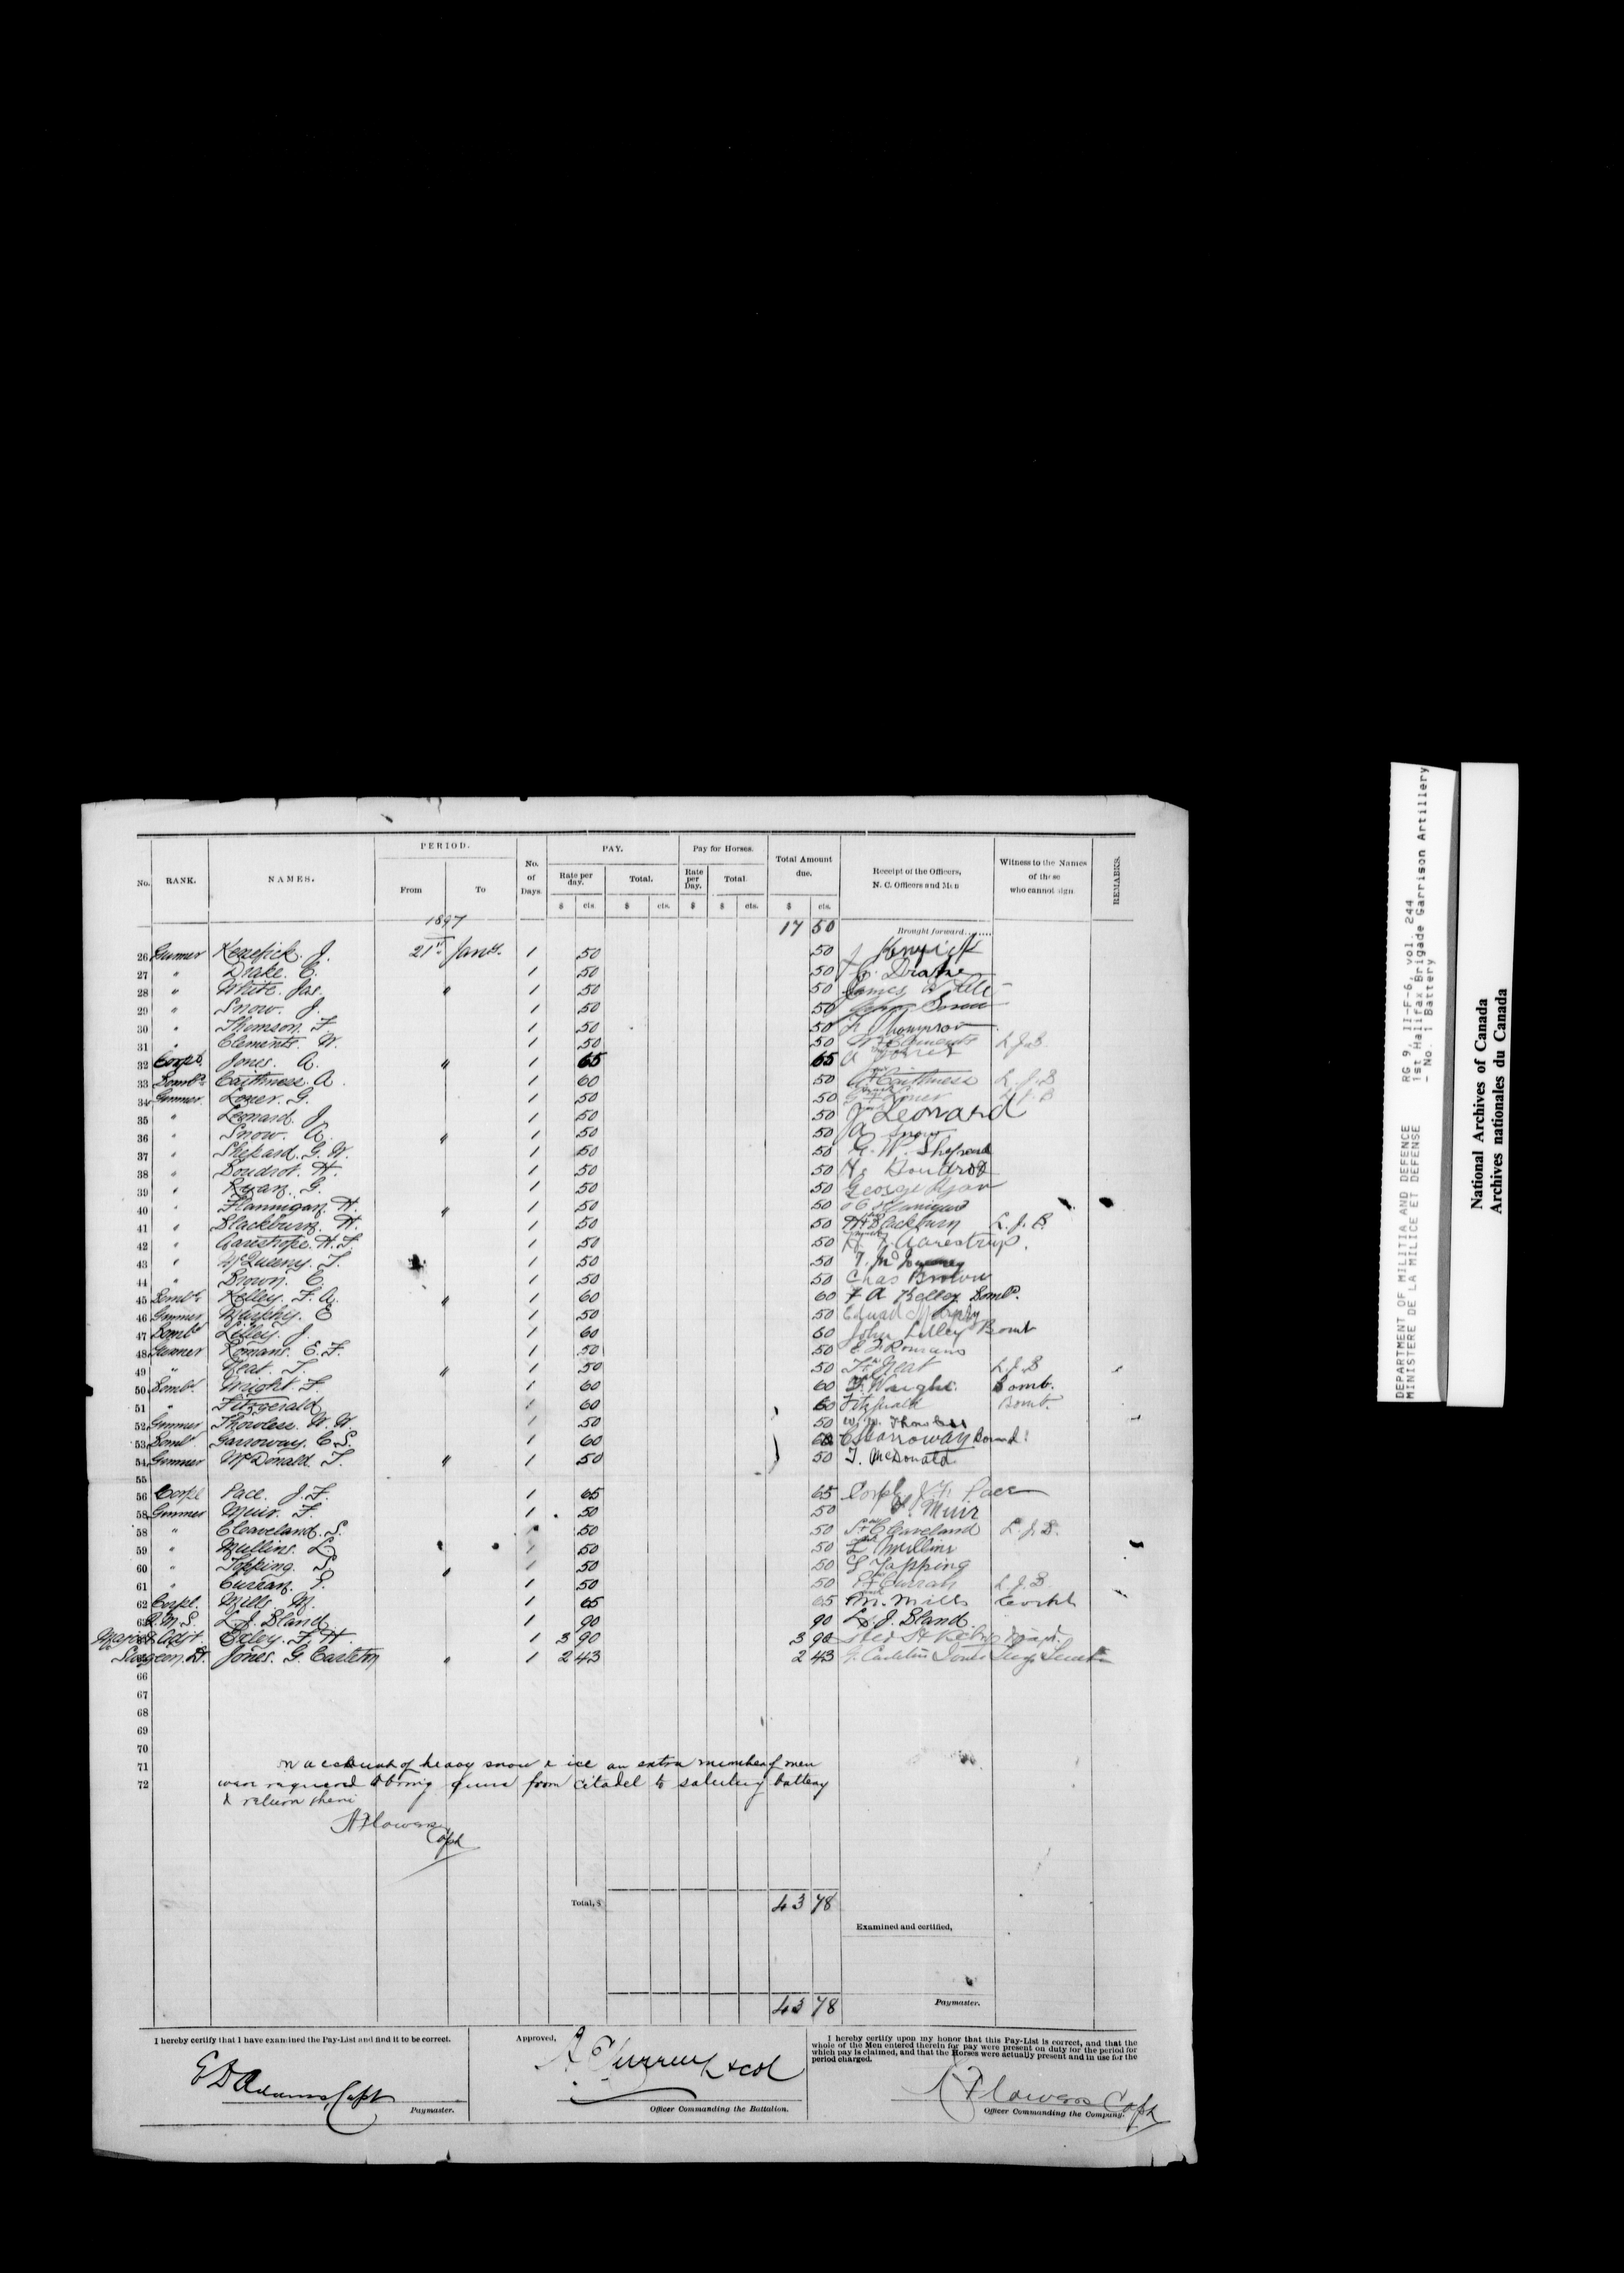 No. RANK. NAMES. PERIOD. From To No. of Days PAY. Rate per day. $ cts. Total. $ cts. Pay for Horses. Rate per Day. $ Total. $ cts. Total Amount due. $ cts. Receipt of the Officers, N. C. Officers and Men Witness to the Names of those who cannot sign. REMARKS.
1897 17 50 Brought forward........
26 Gunner Kenefick. J. 21st Jany. 1 50 50
27 " Drake. C. 1 50 50 C. Drake
28 " White. Jas. " 1 50 50 James White
29 " Snow. J. 1 50 50 John Snow
30 " Thomson. F. 1 50 50 F Thompson
31 " Clements. W. 1 50 50 W Clements L.J.B.
32 Corpl. Jones. A. " 1 65 65 A Jones
33 Bombr. Caithness. A. 1 60 50 A Caithness L.J.B
34 Gunner. Loner. G. 1 50 50 G Loner L.J.B
35 " Leonard. J. 1 50 50 J Leonard
36 " Snow. A. " 1 50 50 A Snow
37 " Shepard. G. W. 1 50 50 G. W. Shepard
38 " Boudrot. H. 1 50 50 H. Boudrot
39 " Ryan. G. 1 50 50 George Ryan
40 " Flannigan. H. " 1 50 50
41 " Blackburn. H. 1 50 50 H Blackburn L.J.B.
42 " Aarestrope. H. F. 1 50 50 H F Aarestrup.
43 " McQueeny. T. 1 50 50
44 " Brown. C. 1 50 50 Chas Brown
45 Bombr. Kelley. F. A. " 1 60 60 F A Kelley Bombr.
46 Gunner Murphy. E 1 50 50 Eduad Murphy
47 Bombr Lilley. J. 1 60 60 John Lilley Bomb
48 Gunner Romans. E. F. 1 50 50 E F Romans
49 " Neat. T. " 1 50 50 T Neat L.J.B
50 Bombr. Wright. F. 1 60 60 F. Wright. Bomb.
51 " Fitzgerald 1 60 60 Fitzgerald Bomb
52 Gunner Thowless. W. W. 1 50 50 W. W. Thowless
53 Bombr Garroway. C. S. 1 60 60 C S Garroway Bomb.
54 Gunner McDonald. T. " 1 50 50 T. McDonald
55
56 Corpl Pace. J. F. 1 65 65 Corpl J. F. Pace
58 Gunner Muir. F. 1 50 50 F. Muir
58 " Cleaveland. S. 1 50 50 S Cleaveland L.J.B.
59 " Mullins. L. 1 50 50 L Mullins
60 " Topping. S. " 1 50 50 S Topping
61 " Curran. P. 1 50 50 P Curran L.J.B.
62 Corpl. Mills. M. 1 65 65 M. Mills Corpl
63 Q.M.S. L. J. Bland 1 90 90 L. J. Bland
Major & Adjt. Oxley. F. H 1 3 90 3 90
Surgeon Lt. Jones. G. Carleton " 1 2 43 2 43 G. Carleton Jones Surg. Lieut
66
67
68
69
70
71 On account of heavy snow & ice an extra number of men
72 were required to bring guns from citadel to saluting battery
& return them
A Flowers
Capt
Total, $ 43 78
Examined and certified,
43 78 Paymaster.
I hereby certify that I have examined the Pay-List and find it to be correct.
E D Adams Capt
Paymaster.
Approved,
A E Curren Lt col
Officer Commanding the Battalion.
I hereby certify upon my honor that this Pay-List is correct, and that the
whole of the Men entered therein for pay were present on duty for the period for
which pay is claimed, and that the Horses were actually present and in use for the
period charged.
A Flowers Capt
Officer Commanding the Company.
DEPARTMENT OF MILITIA AND DEFENCE
MINISTERE DE LA MILICE ET DEFENSE
RG 9, II-F-6, vol. 244
1st Halifax Brigade Garrison Artillery
- No. 1 Battery
National Archives of Canada
Archives nationales du Canada